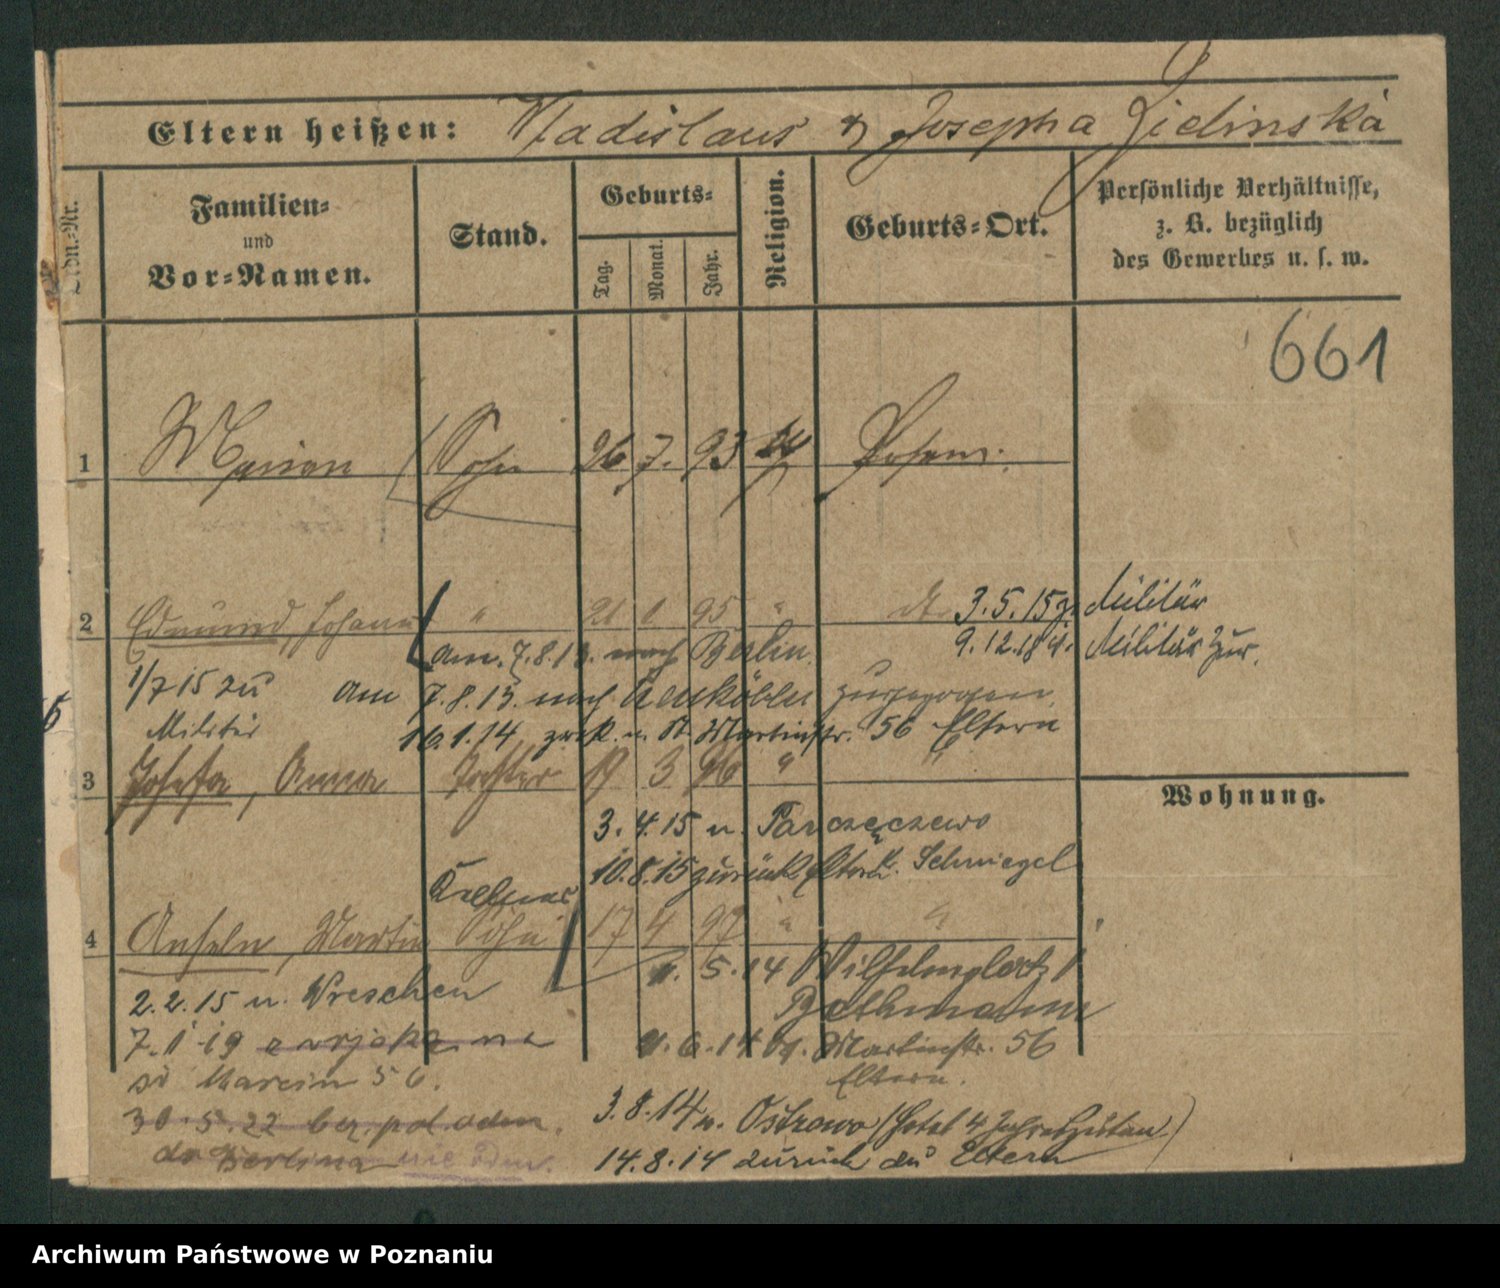 Eltern heißen: Wladislaus & Josepha Zielinska
Lfdn.-Nr.
Familien-
und
Vor-Namen.
Stand.
Geburts-
Tag.
Monat.
Jahr.
Religion.
Geburts-Ort.
Persönliche Verhältnisse,
z. B. bezüglich
des Gewerbes u. s. w.
661
1 Maryan Sohn 26 7. 93 Posen
2 Edmund, Johann " 21 1 95 " 3.5.15 z. Militär
am 7.8.13. nach Berlin 9.12.18 v. Militär zur.
1/7 15 zu am 7.8.13. nach Neukölln zurgezogen
Militär 16.1.14 zurk. v. St. Martinstr. 56 Eltern
3 Josefa, Anna Tochter 19 3 96 " "
Wohnung.
3.4.15 n. Parzęczewo
10.8.15 zurück Eltern K. Schmiegel
Kellner
4 Anselm, Martin Sohn 17 4 97 " "
5.14 Wilhelmplatz 1
2.2.15 n. Wreschen Bethmann
7.1.19 na 6.14 Martinstr. 56
św Marcin 56. Eltern.
3.8.14 n. Ostrowo (Hotel 4 Jahreszeiten)
30.5.22 bez pol. odm.
do Berlina 14.8.14 zurück zu Eltern
Archiwum Państwowe w Poznaniu